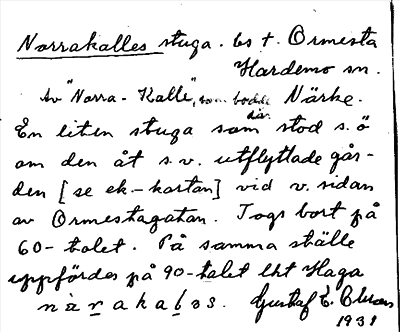 Norrakalles stuga. bs t. Ormesta
Hardemo sn.
Av "Norra-Kalle", som bodde där. Närke.
En liten stuga som stod s.ö
om den åt s.v. utflyttade går-
den [se ek-kartan] vid v. sidan
av Ormestagatan. Togs bort på
60-talet. På samma ställe
uppfördes på 90-talet lht Haga
nàrakalos. Gustaf E.
1931